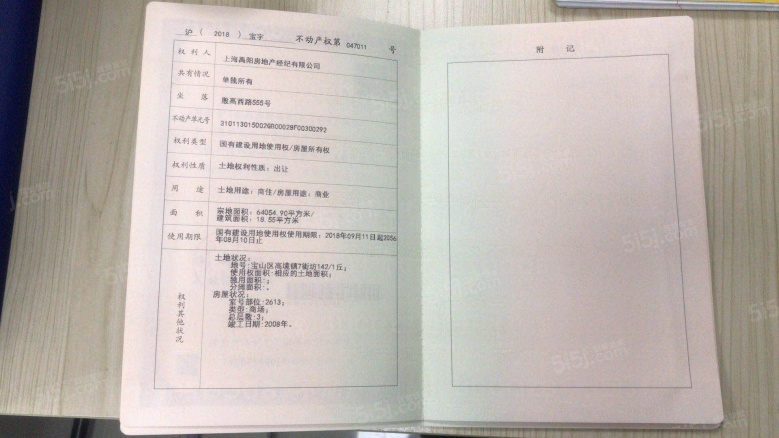 沪（ 2018 ）宝字 不动产权第 047011 号
权利人 上海禹阳房地产经纪有限公司
共有情况 单独所有
坐落 殷高西路555号
不动产单元号 310113015002GB00028F00300292
权利类型 国有建设用地使用权/房屋所有权
权利性质 土地权利性质：出让
用途 土地用途：商住/房屋用途：商业
面积 宗地面积：64054.90平方米/
建筑面积：18.55平方米
使用期限 国有建设用地使用权使用期限：2018年09月11日起2056
年08月10日止
权利其他状况
土地状况：
地号:宝山区高境镇7街坊147/1丘;
使用权面积:相应的土地面积;
独用面积:;
分摊面积:。
房屋状况：
室号部位:2613;
类型:商场;
总层数:3;
竣工日期:2008年。
附记
5i5j.com